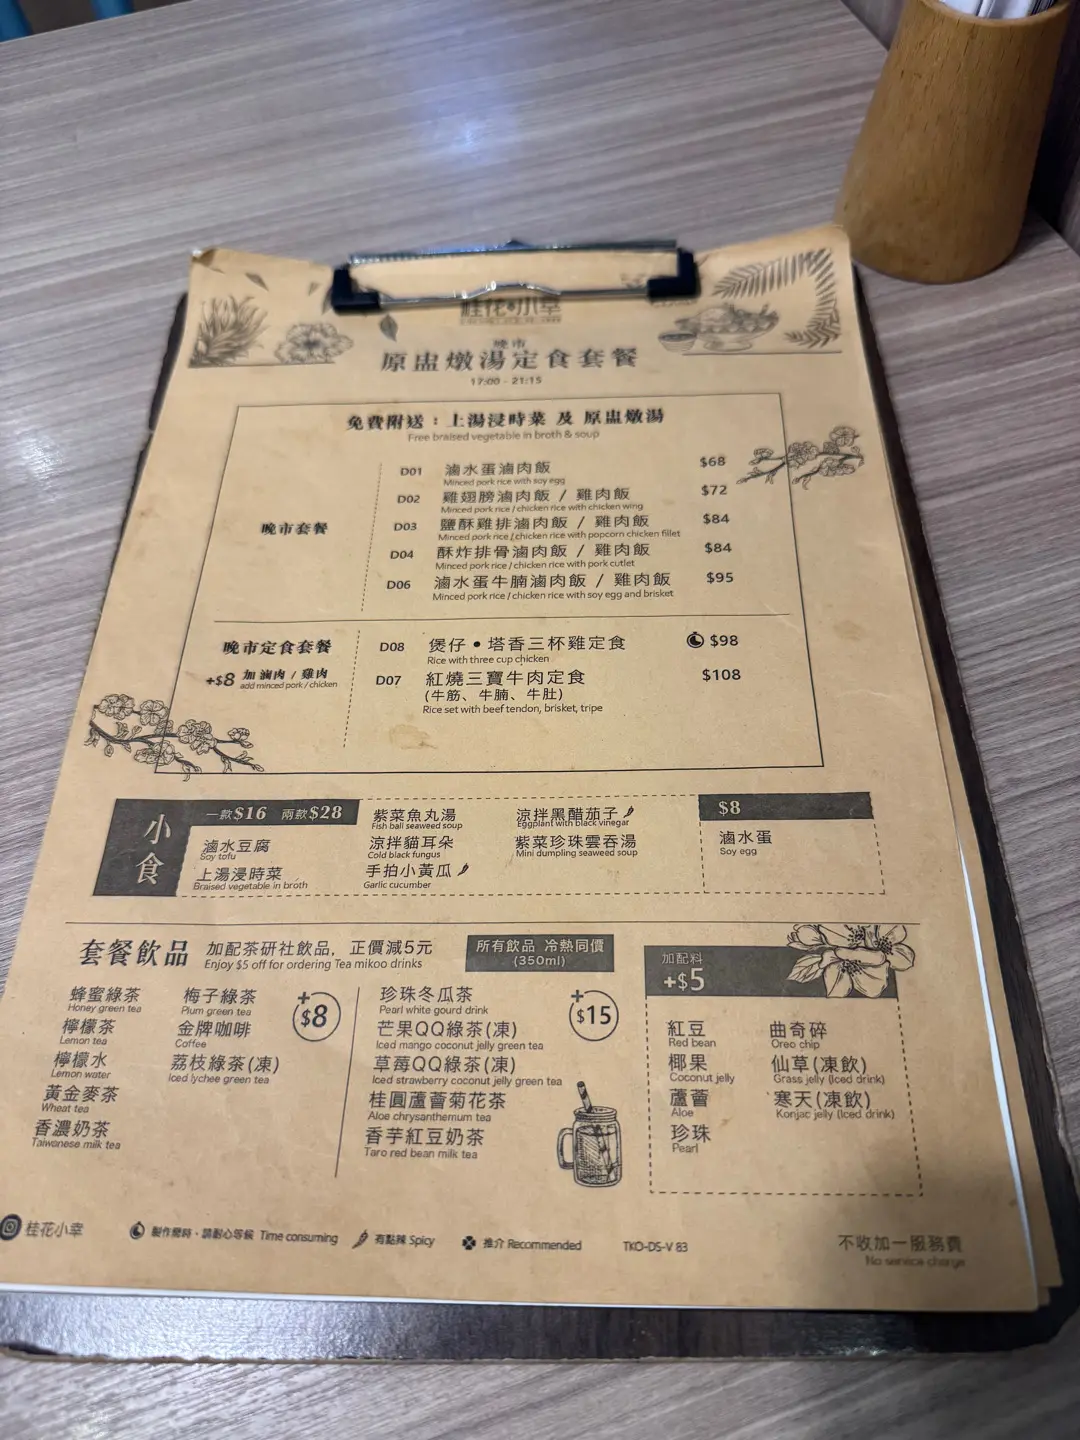 桂花小幸
晚市
原盅燉湯定食套餐
17:00 - 21:15
免費附送：上湯浸時菜 及 原盅燉湯
Free braised vegetable in broth & soup
晚市套餐
D01 滷水蛋滷肉飯 $68
Minced pork rice with soy egg
D02 雞翅膀滷肉飯 / 雞肉飯 $72
Minced pork rice / chicken rice with chicken wing
D03 鹽酥雞排滷肉飯 / 雞肉飯 $84
Minced pork rice / chicken rice with popcorn chicken fillet
D04 酥炸排骨滷肉飯 / 雞肉飯 $84
Minced pork rice / chicken rice with pork cutlet
D06 滷水蛋牛腩滷肉飯 / 雞肉飯 $95
Minced pork rice / chicken rice with soy egg and brisket
晚市定食套餐
+$8 加 滷肉 / 雞肉
add minced pork / chicken
D08 煲仔•塔香三杯雞定食 $98
Rice with three cup chicken
D07 紅燒三寶牛肉定食 $108
(牛筋、牛腩、牛肚)
Rice set with beef tendon, brisket, tripe
小食
一款$16 兩款$28
滷水豆腐
Soy tofu
上湯浸時菜
Braised vegetable in broth
紫菜魚丸湯
Fish ball seaweed soup
涼拌貓耳朵
Cold black fungus
手拍小黃瓜
Garlic cucumber
涼拌黑醋茄子
Eggplant with black vinegar
紫菜珍珠雲吞湯
Mini dumpling seaweed soup
$8
滷水蛋
Soy egg
套餐飲品 加配茶研社飲品，正價減5元
Enjoy $5 off for ordering Tea mikoo drinks
所有飲品 冷熱同價
(350ml)
+$8
蜂蜜綠茶
Honey green tea
檸檬茶
Lemon tea
檸檬水
Lemon water
黃金麥茶
Wheat tea
香濃奶茶
Taiwanese milk tea
梅子綠茶
Plum green tea
金牌咖啡
Coffee
荔枝綠茶(凍)
Iced lychee green tea
+$15
珍珠冬瓜茶
Pearl white gourd drink
芒果QQ綠茶(凍)
Iced mango coconut jelly green tea
草莓QQ綠茶(凍)
Iced strawberry coconut jelly green tea
桂圓蘆薈菊花茶
Aloe chrysanthemum tea
香芋紅豆奶茶
Taro red bean milk tea
加配料
+$5
紅豆
Red bean
椰果
Coconut jelly
蘆薈
Aloe
珍珠
Pearl
曲奇碎
Oreo chip
仙草(凍飲)
Grass jelly (Iced drink)
寒天(凍飲)
Konjac jelly (Iced drink)
桂花小幸
製作需時，請耐心等候 Time consuming
有點辣 Spicy
推介 Recommended
TKO-DS-V 83
不收加一服務費
No service charge